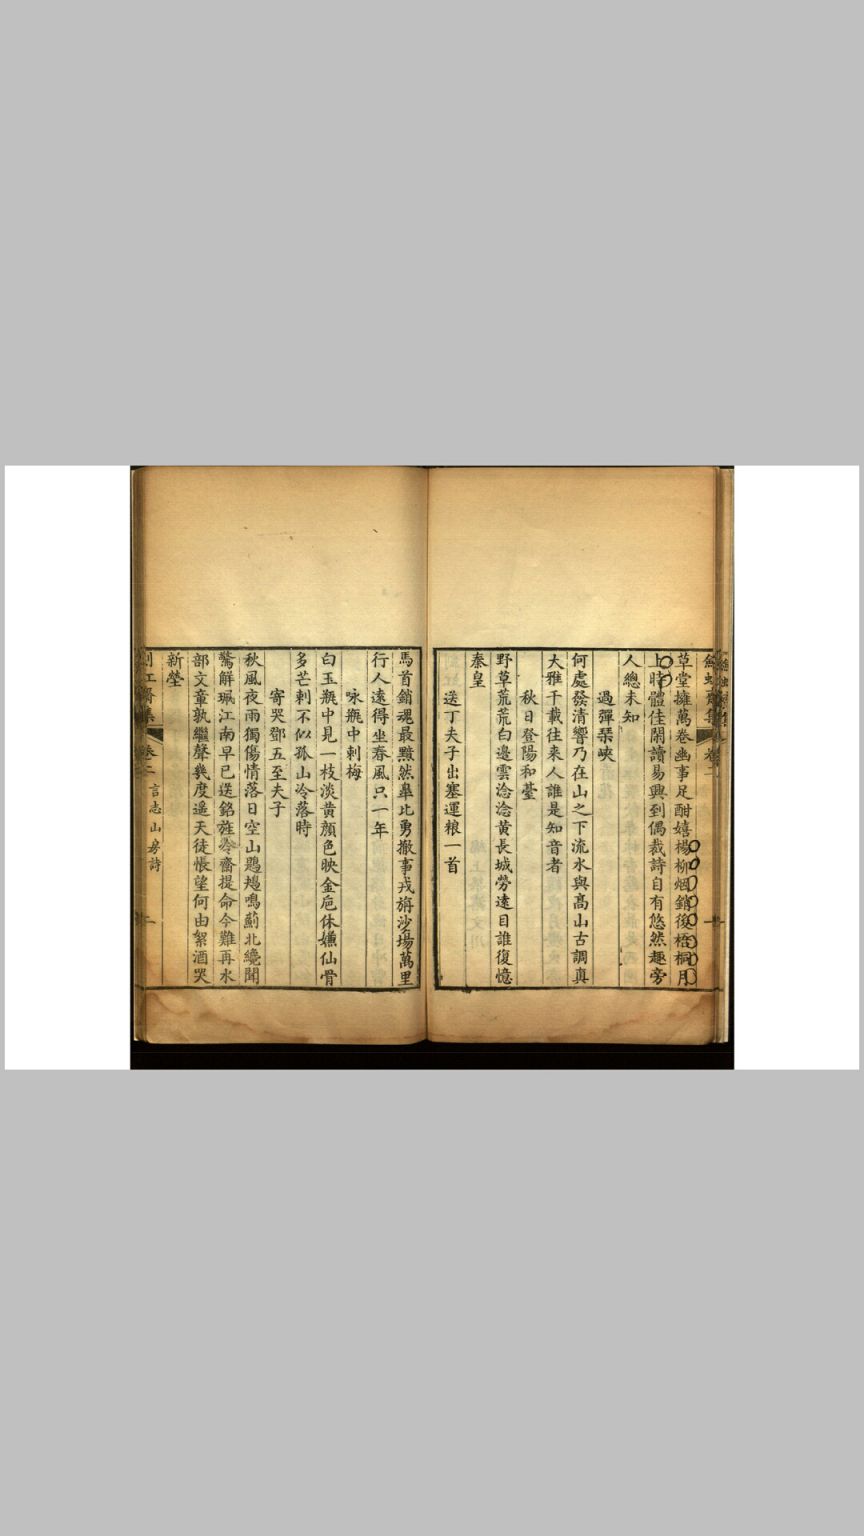 草堂擁萬卷幽事足酣嬉楊柳烟銷後梧桐月
上時體佳閒讀易興到偶裁詩自有悠然趣旁
人總未知
過彈琹峽
何處發清響乃在山之下流水與高山古調真
大雅千載往来人誰是知音者
秋日登陽和䑓
野草荒荒白邊雲淰淰黄長城勞遠目誰復憶
秦皇
送丁夫子出塞運粮一首
馬首銷魂最黯然臯比勇撤事戎旃沙場萬里
行人遠得坐春風只一年
咏瓶中刺梅
白玉瓶中見一枝淡黄顔色映金巵休嫌仙骨
多芒刺不似孤山冷落時
寄哭鄧五至夫子
秋風夜雨獨傷情落日空山鶗鴂鳴薊北纔聞
驚解珮江南早已送銘旌齋提命今難再水
部文章孰繼聲幾度遥天徒悵望何由絮酒哭
新塋
卷二 言志山房詩